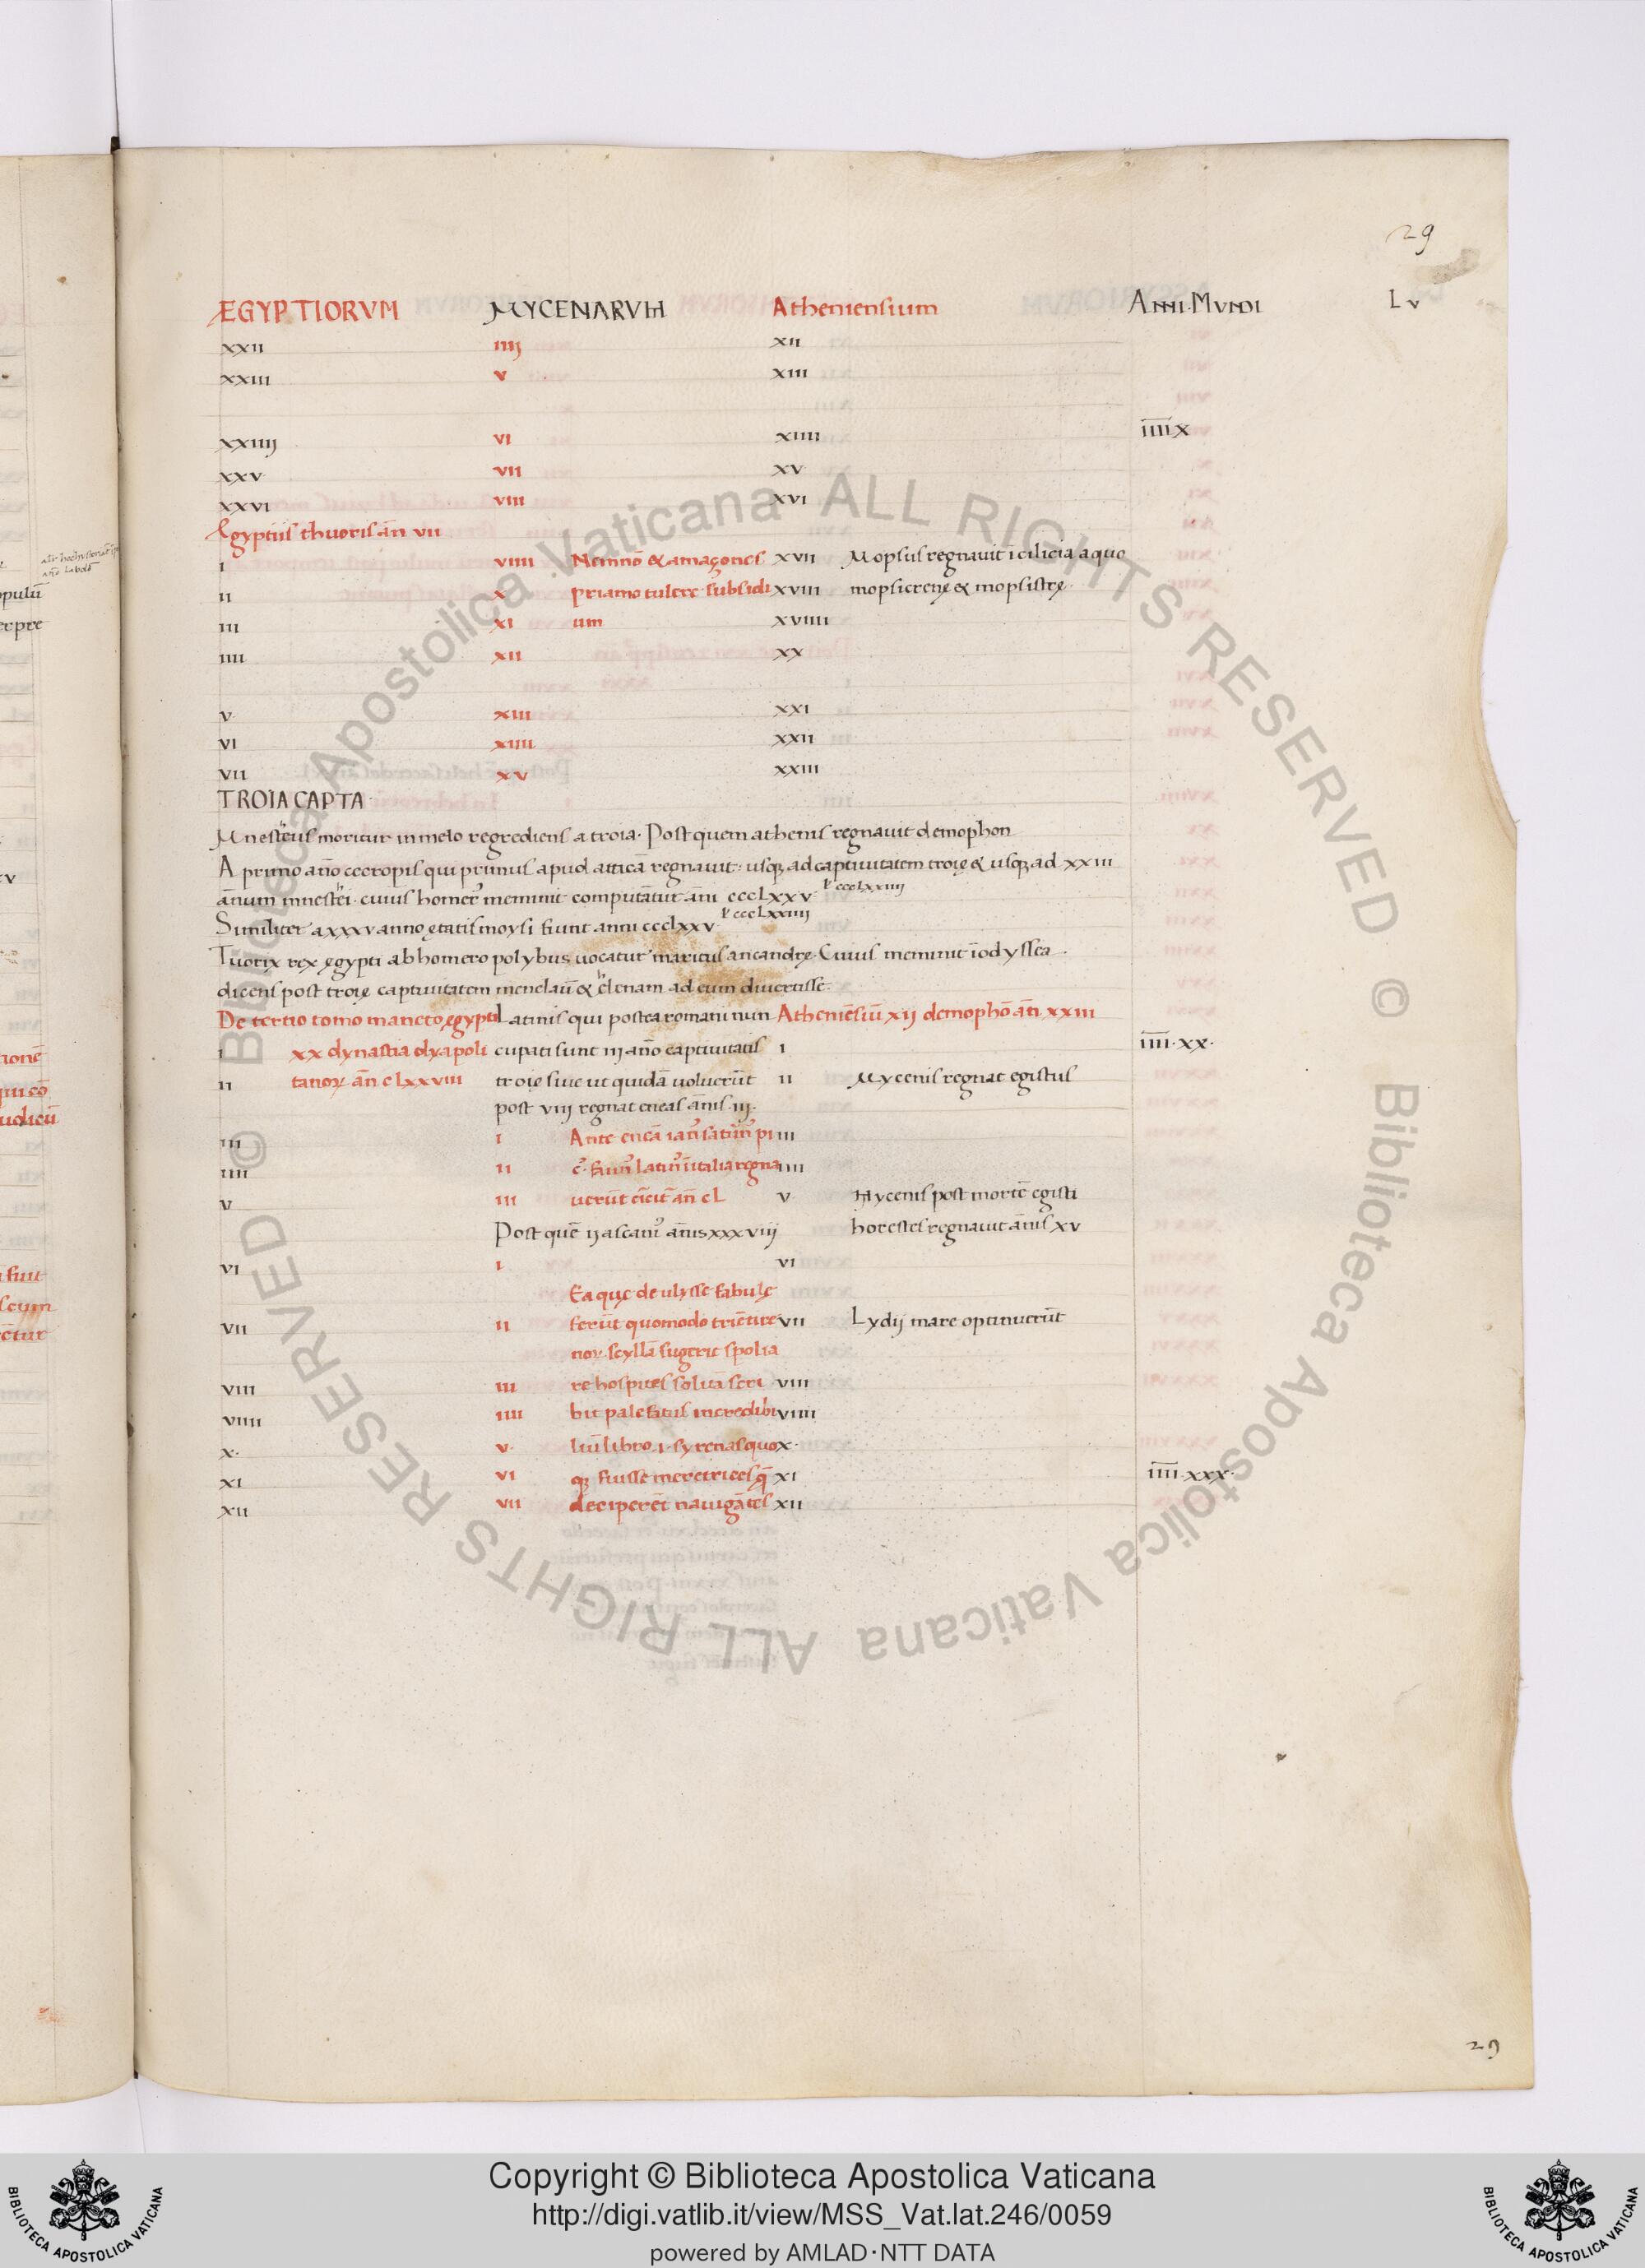 29
ÆGYPTIORVM MYCENARVM Atheniensium ANNI·MVNDI LV
XXII IIIJ XII
XXIII V XIII
XXIIIJ VI XIIII I̅I̅I̅I̅X
XXV VII XV
XXVI VIII XVI
Ęgyptiis thuoris an̄ VII
I VIIII Nemnō & amaçones XVII Mopsus regnavit ī cilicia a quo
II X priamo tulere subsidi XVIII mopsicrenę & mopsistrę·
III XI um XVIIII
IIII XII XX
V XIII XXI
VI XIIII XXII
VII XV XXIII
TROIA CAPTA·
Mnesteus moritur in melo regrediens a troia· Post quem athenis regnavit demophon
A primo an̄o cecropis qui primus apud atticā regnavit· usq; ad captivitatem troię & usq; ad XXIII
ān̄um mnestei· cuius homer᾽ meminit computātur an̄i CCCLXXV ł CCCLXXIIII
Similiter a XXXV anno ętatis moysi fiunt anni CCCLXXV ł CCCLXXIIII
Tuorix rex ęgypti ab homero polybus vocatur maritus ancandrę· Cuius meminit ī odyssea·
dicens post troię captivitatem menelaū & helenam ad eum divertisse·
De tertio tomo maneto ęgyptii Latinis qui postea romani nun Atheniēsiū XIJ demophō an̄ XXIII
I XX dynastia dyapoli cupati sunt IIJ an̄o captivitatis I I̅I̅I̅I̅·XX·
II tanoꝝ an̄ CLXXVIII troię sive ut quidā voluerūt II Mycenis regnat egistus
post VIIJ regnat eneas ān̄is·IIJ·
III I Ante eneā ian᾽ saturn᾽ pi III
IIII II c᾽· faun᾽ latin᾽ ī italia regna IIII
V III verūt circit̄ an̄ CL V Mycenis post mortē egisti
Post quē IJ ascani᾽ an̄is XXXVIIJ horestes regnavit ān̄is XV
VI I VI
Ea quę de ulysse fabulę
VII II ferūt quomodo triēture VII Lydij mare optinuerūt
noꝝ scyllā fugerit spolia
VIII III re hospites solitā scri VIII
VIIII IIII bit palefatus incredibi VIIII
X· V· liū libro·I·syrenas quo X·
XI VI q; fuisse meretrices q̄ XI I̅I̅I̅I̅·XXX·
XII VII deciperēt navigātes XII
29
Copyright © Biblioteca Apostolica Vaticana
http://digi.vatlib.it/view/MSS_Vat.lat.246/0059
powered by AMLAD·NTT DATA
BIBLIOTECA APOSTOLICA VATICANA
BIBLIOTECA APOSTOLICA VATICANA
© Biblioteca Apostolica Vaticana ALL RIGHTS RESERVED
© Biblioteca Apostolica Vaticana ALL RIGHTS RESERVED